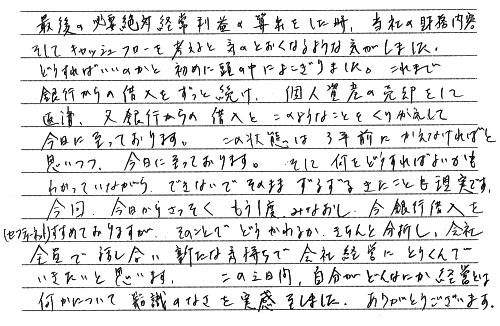 最後の必要絶対経常利益の算出をした時、当社の財務内容
そしてキャッシュフローを考えると気のとおくなるような気がしました。
どうすればいいのかと初めに頭の中によこぎりました。これまで
銀行からの借入をずっと続け、個人資産の売却をして
返済、又銀行からの借入と このようなことをくりかえして
今日に至っております。この状態は3年前にかえなければと
思いつつ、今日に至っております。そして何をどうすればよいかも
わかっていながら、できないでそのままずるずるきたことも現実です。
今回、今日からさっそくもう1度みなおし、今銀行借入を
(セフティネット)すすめておりますが、そのことでどうかわるか、きちんと分析し、会社
全員で話し合い新たな気持ちで会社経営にとりくんで
いきたいと思います。この三日間、自分がどんなにか経営とは
何かについて認識のなさを実感をしました。ありがとうございます。